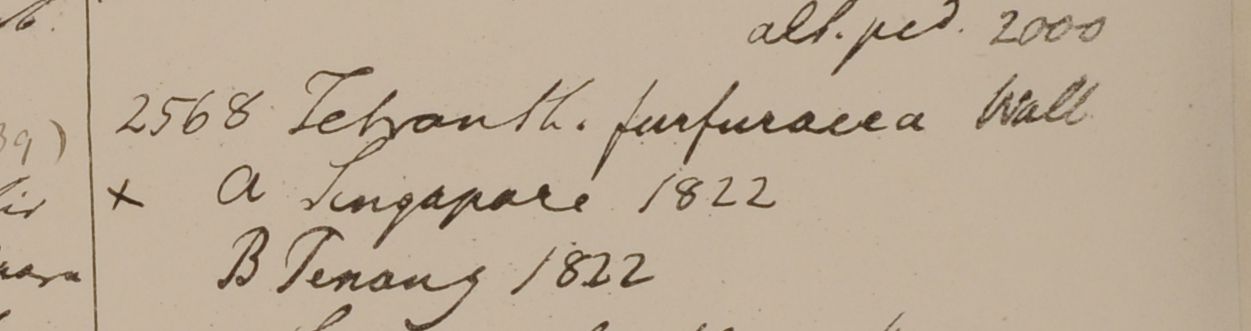 alt. ped. 2000
2568 Tetranth. furfuracea Wall
x a Singapore 1822
B Penang 1822